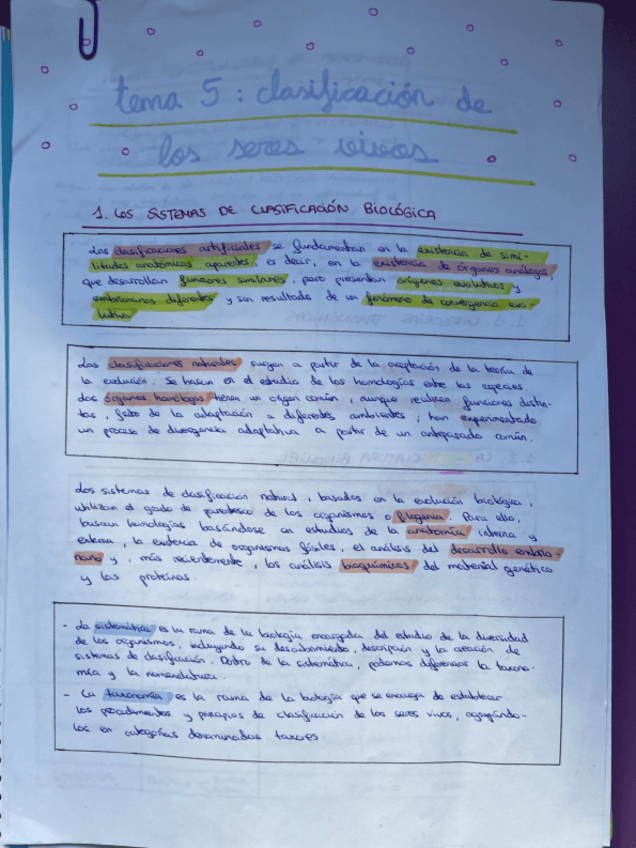 tema 5: clasificación de
los seres vivos
1. LOS SISTEMAS DE CLASIFICACIÓN BIOLÓGICA
Las clasificaciones artificiales se fundamentan en la existencia de simi-
litudes anatómicas aparentes, es decir, en la existencia de órganos análogos,
que desarrollan funciones similares, pero presentan orígenes evolutivos y
embrionarios diferentes y son resultado de un fenómeno de convergencia evo-
lutiva
Las clasificaciones naturales surgen a partir de la aceptación de la teoría de
la evolución. Se basan en el estudio de las homologías entre las especies.
Los órganos homólogos tienen un origen común, aunque realicen funciones distin-
tas, fruto de la adaptación a diferentes ambientes; han experimentado
un proceso de divergencia adaptativa a partir de un antepasado común.
Los sistemas de clasificación natural, basados en la evolución biológica,
utilizan el grado de parentesco de los organismos o filogenia. Para ello,
buscan homologías basándose en estudios de la anatomía interna y
externa, la existencia de organismos fósiles, el análisis del desarrollo embrio-
nario y, más recientemente, los análisis bioquímicos del material genético
y las proteínas.
- La sistemática es la rama de la biología encargada del estudio de la diversidad
de los organismos, incluyendo su descubrimiento, descripción y la creación de
sistemas de clasificación. Dentro de la sistemática, podemos diferenciar la taxono-
mía y la nomenclatura.
- La taxonomía es la rama de la biología que se encarga de establecer
los procedimientos y principios de clasificación de los seres vivos, agrupándo-
los en categorías denominadas taxones